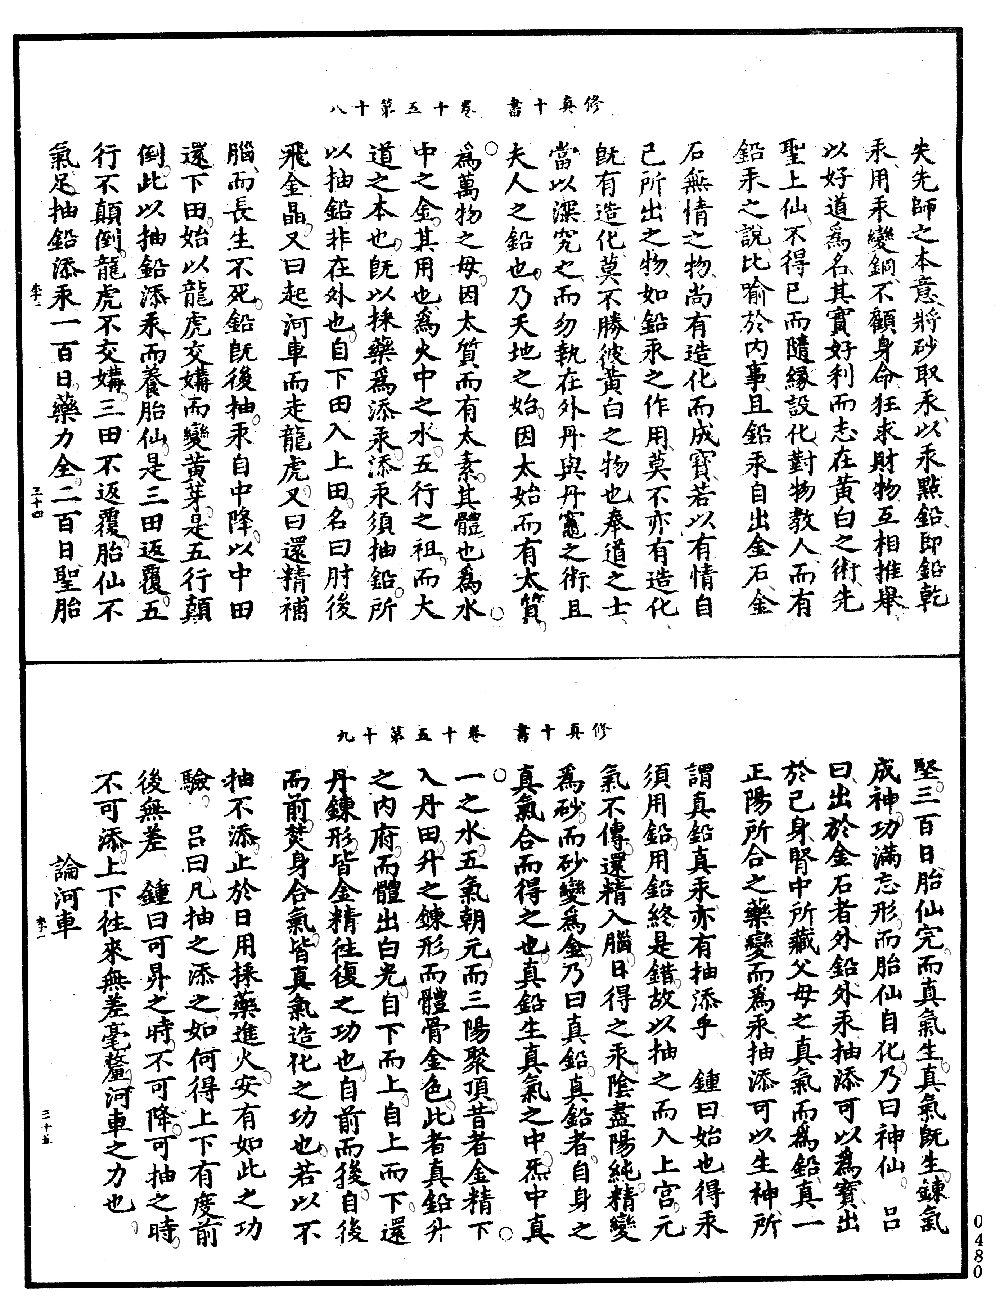 修真十書　卷十五第十八
失先師之本意將砂取汞以汞點鉛即鉛乾
汞用汞變銅不顧身命狂求財物互相推舉
以好道爲名其實好利而志在黃白之術先
聖上仙不得已而隨緣設化對物教人而有
鉛汞之說比喻於内事且鉛汞自出金石金
石無情之物尚有造化而成寶若以有情自
己所出之物如鉛汞之作用莫不亦有造化
旣有造化莫不勝彼黃白之物也奉道之士
當以深究之而勿執在外丹與丹竈之術且
夫人之鉛也乃天地之始因太始而有太質
爲萬物之母因太質而有太素其體也爲水
中之金其用也爲火中之水五行之祖而大
道之本也旣以採藥爲添汞添汞須抽鉛所
以抽鉛非在外也自下田入上田名曰肘後
飛金晶又曰起河車而走龍虎又曰還精補
腦而長生不死鉛旣後抽汞自中降以中田
還下田始以龍虎交媾而變黃芽是五行顛
倒此以抽鉛添汞而養胎仙是三田返覆五
行不顛倒龍虎不交媾三田不返覆胎仙不
氣足抽鉛添汞一百日藥力全二百日聖胎
李一
三十四
修真十書　卷十五第十九
堅三百日胎仙完而真氣生真氣旣生鍊氣
成神功滿忘形而胎仙自化乃曰神仙　呂
曰出於金石者外鉛外汞抽添可以爲寶出
於己身腎中所藏父母之真氣而爲鉛真一
正陽所合之藥變而爲汞抽添可以生神所
謂真鉛真汞亦有抽添乎　鍾曰始也得汞
須用鉛用鉛終是錯故以抽之而入上宮元
氣不傳還精入腦日得之汞陰盡陽純精變
爲砂而砂變爲金乃曰真鉛真鉛者自身之
真氣合而得之也真鉛生真氣之中炁中真
一之水五氣朝元而三陽聚頂昔者金精下
入丹田升之鍊形而體骨金色此者真鉛升
之内府而體出白光自下而上自上而下還
丹鍊形皆金精往復之功也自前而後自後
而前焚身合氣皆真氣造化之功也若以不
抽不添止於日用採藥進火安有如此之功
驗　呂曰凡抽之添之如何得上下有度前
後無差　鍾曰可昇之時不可降可抽之時
不可添上下往來無差毫釐河車之力也
論河車
李一
三十五
0480